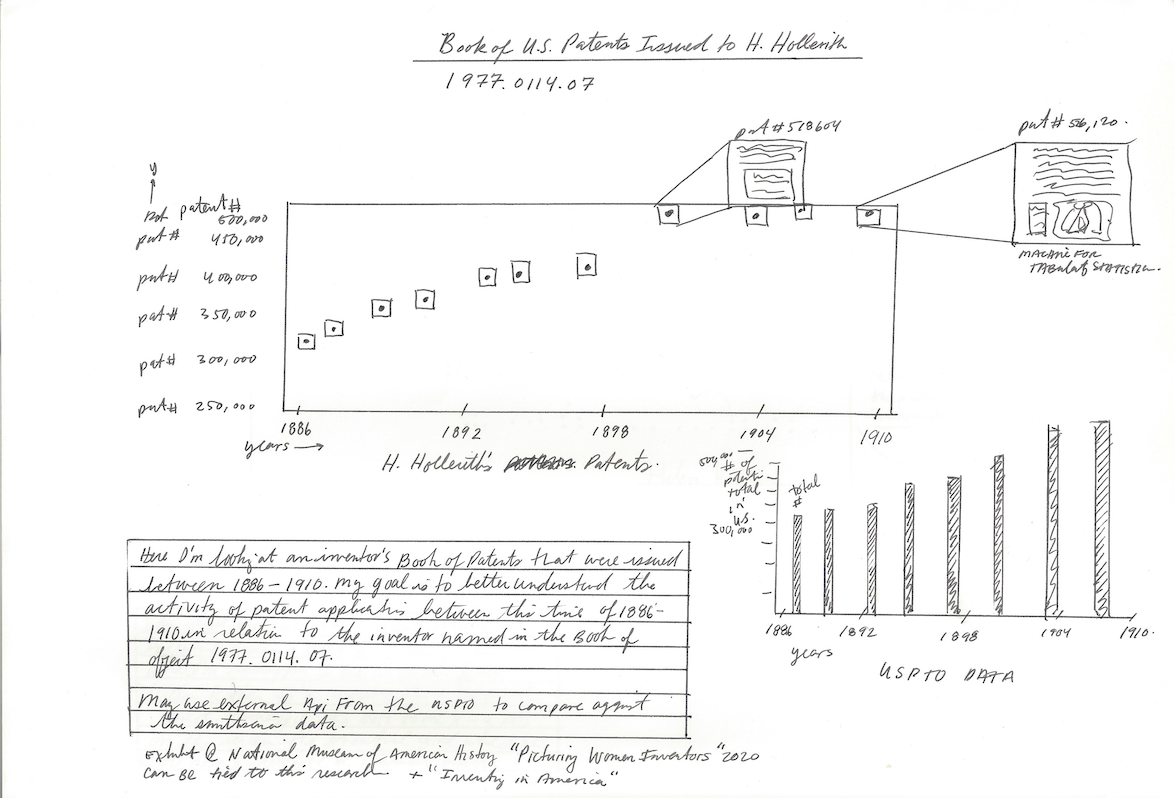 Book of U.S. Patents Issued to H. Hollerith
1977.0114.07
pat # 518604
pat # 516,120.
y
patent #
500,000
pat # 450,000
pat # 400,000
pat # 350,000
pat # 300,000
pat # 250,000
MACHINE FOR
TABulatg STATISTICS.
1886 1892 1898 1904 1910
years →
H. Hollerith's Patents.
500,000
# of
patents
total
in
U.S.
300,000
total
#
1886 1892 1898 1904 1910.
years
USPTO DATA
Here I'm lookg at an inventor's Book of Patents that were issued
between 1886 – 1910. My goal is to better understand the
activity of patent applicatis between this time of 1886-
1910 in relatin to the inventor named in the Book of
objeit 1977.0114.07.
May use external Api From the USPTO to compare against
the smithsonia data.
Exhibit @ National Museum of American History "Picturing Women Inventors" 2020
can be tied to this research + "Inventig in America"